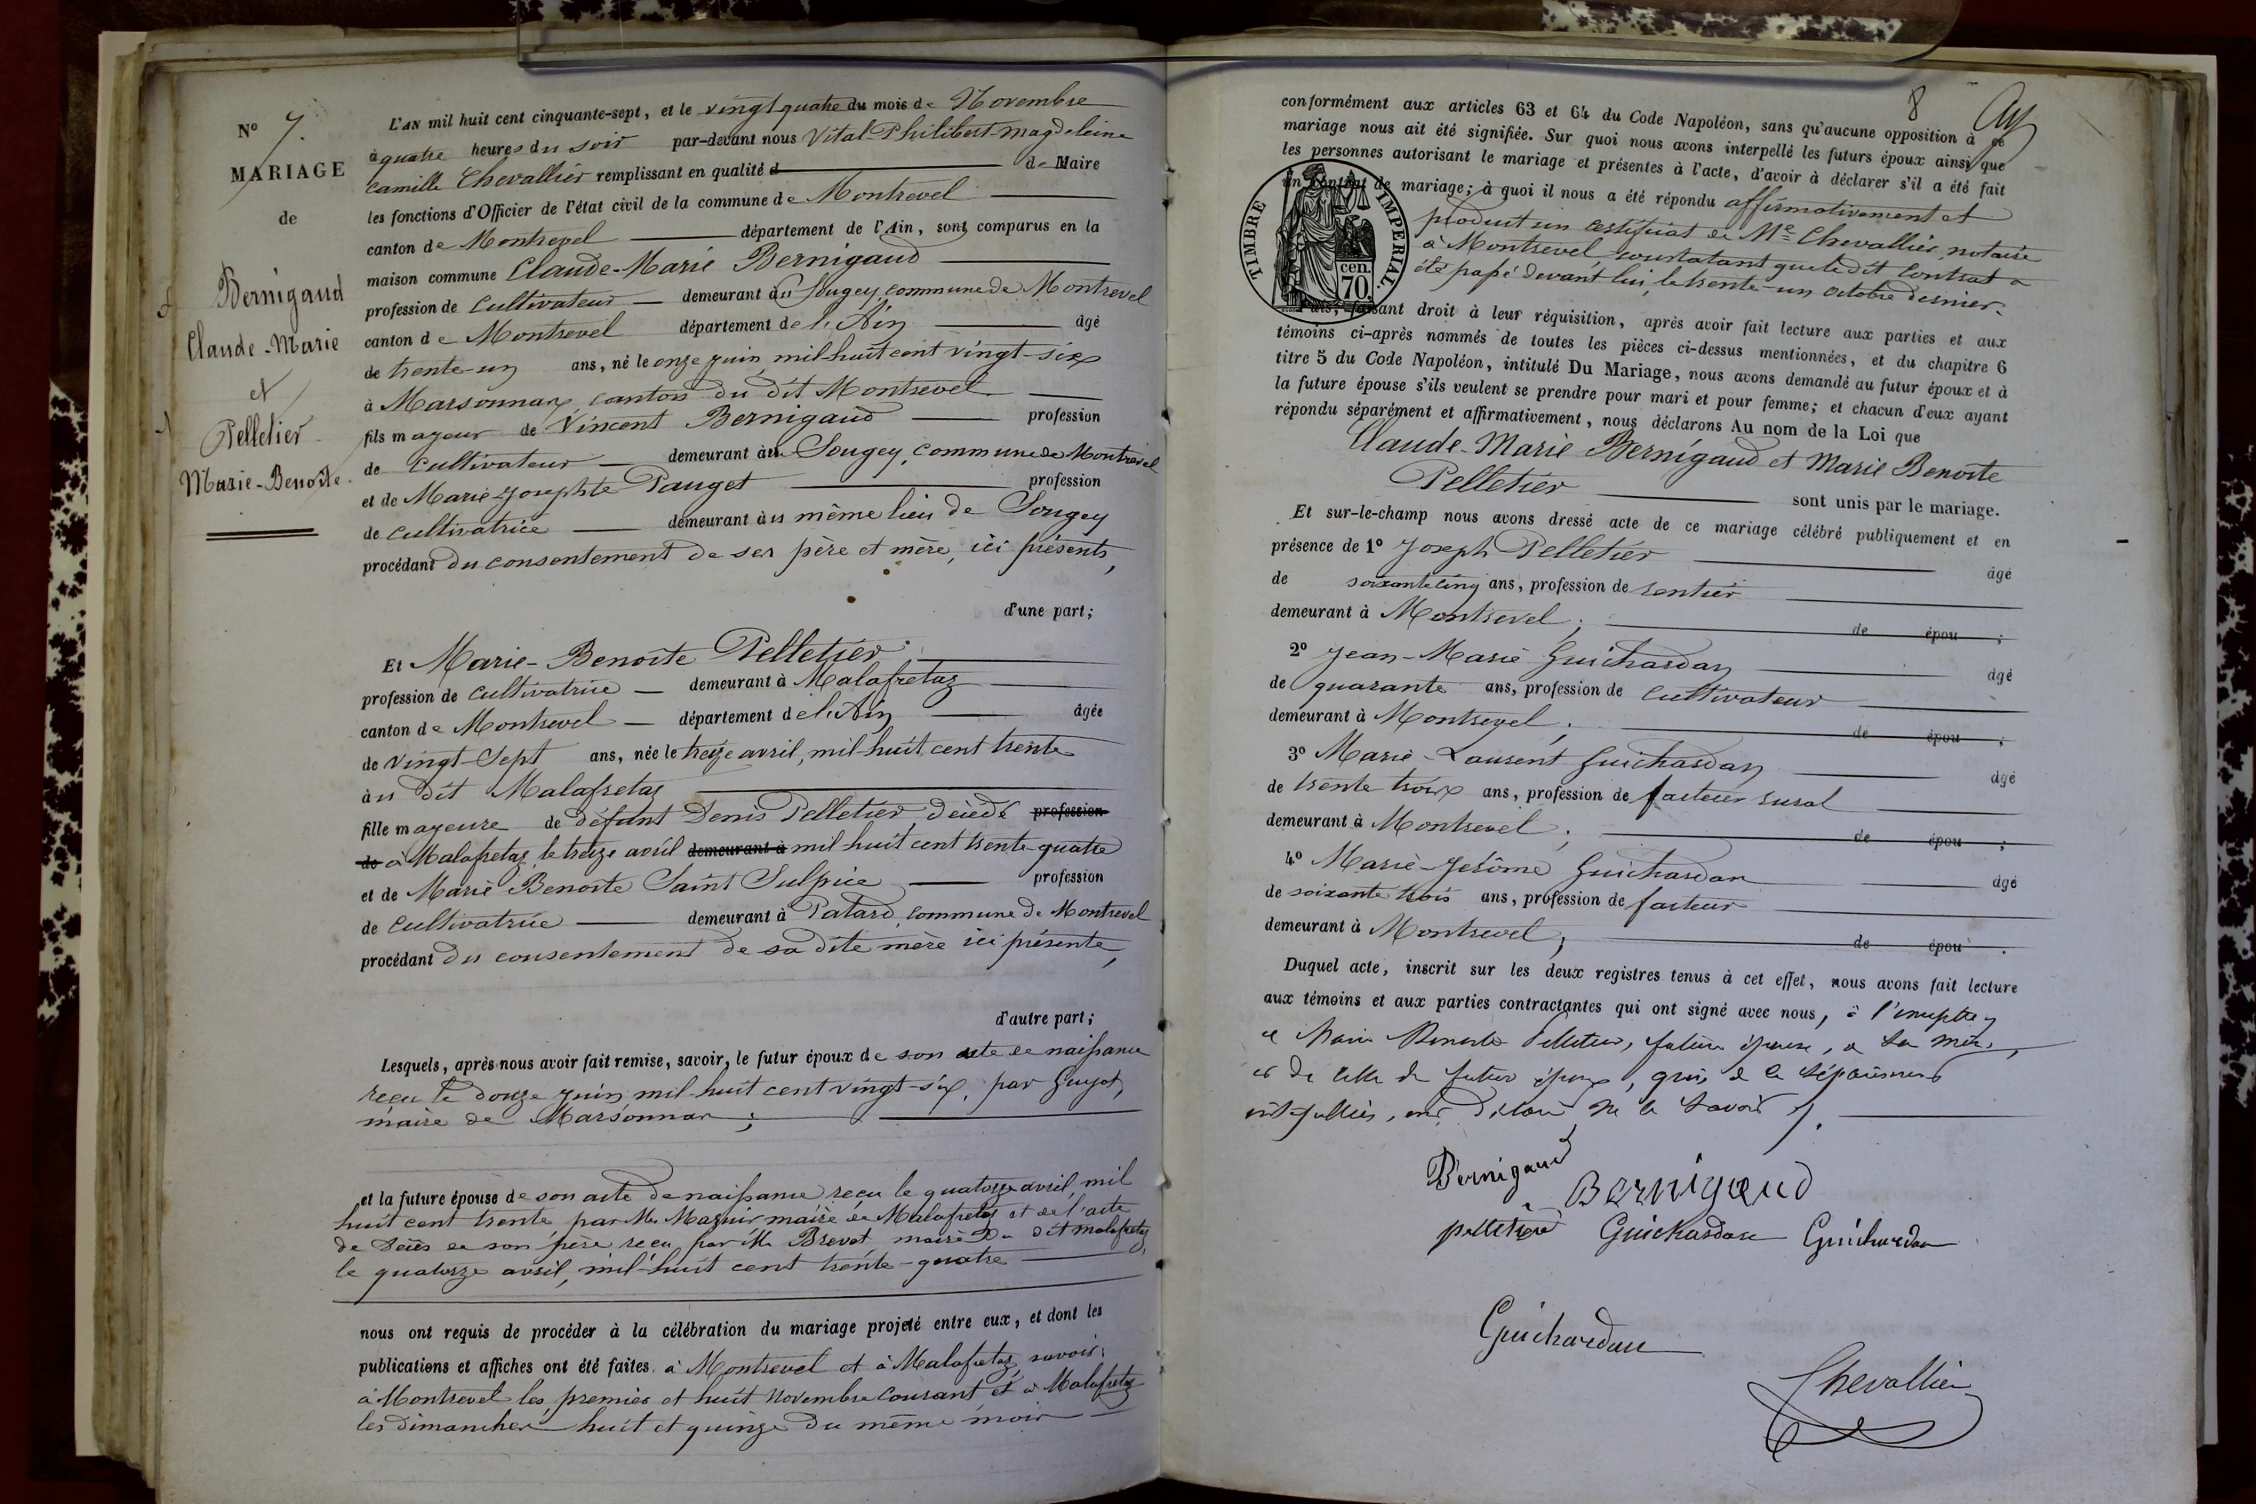 Nº 7.
MARIAGE
de
Bernigaud
Claude-Marie
et
Pelletier
Marie-Benoite.
L'AN mil huit cent cinquante-sept, et le vingt quatre du mois de Novembre
à quatre heures du soir par-devant nous Vital Philibert magdeleine
camille Chevallier remplissant en qualité d de Maire
les fonctions d'Officier de l'état civil de la commune de Montrevel
canton de Montrevel département de l'Ain, sont comparus en la
maison commune Claude-Marie Bernigaud
profession de cultivateur demeurant au Sougey, commune de Montrevel
canton de Montrevel département de l'Ain âgé
de trente-un ans, né le onze juin mil huit cent vingt-six
à Marsonnax, canton du dit Montrevel
fils mayeur de Vincent Bernigaud profession
de cultivateur demeurant au Sougey, commune de Montrevel
et de Marie-Josephte Pauget profession
de cultivatrice demeurant au même lieu de Sougey
procédant du consentement de ses père et mère, ici présents,
d'une part;
Et Marie-Benoite Pelletier
profession de cultivatrice demeurant à Malafretaz
canton de Montrevel département de l'Ain âgée
de vingt-sept ans, née le treize avril, mil huit cent trente
au dit Malafretaz
fille mayeure de défunt Denis Pelletier décédé profession
de à Malafretaz le treize avril demeurant à mil huit cent trente-quatre
et de Marie Benoite Saint Sulpice profession
de cultivatrice demeurant à Patard, commune de Montrevel
procédant du consentement de sa dite mère ici présente,
d'autre part;
Lesquels, après nous avoir fait remise, savoir, le futur époux de son acte de naissance
reçu le douze juin mil huit cent vingt-six, par Guyot,
maire de Marsonnax;
et la future épouse de son acte de naissance reçu le quatorze avril, mil
huit cent trente par Mr maire de Malafretaz et de l'acte
de décès de son père reçu par Mr Brevet maire du dit malafretaz,
le quatorze avril, mil huit cent trente-quatre
nous ont requis de procéder à la célébration du mariage projeté entre eux, et dont les
publications et affiches ont été faites à Montrevel et à Malafretaz, savoir:
à Montrevel les premier et huit novembre courant et à Malafretaz
les dimanches huit et quinze du même mois
8
conformément aux articles 63 et 64 du Code Napoléon, sans qu'aucune opposition à ce
mariage nous ait été signifiée. Sur quoi nous avons interpellé les futurs époux ainsi que
les personnes autorisant le mariage et présentes à l'acte, d'avoir à déclarer s'il a été fait
un contrat de mariage; à quoi il nous a été répondu affirmativement et
produit un certificat de Me Chevallier, notaire
à Montrevel constatant que le dit contrat a
été passé devant lui, le trente-un octobre dernier.
TIMBRE IMPERIAL.
70 cen.
faisant droit à leur réquisition, après avoir fait lecture aux parties et aux
témoins ci-après nommés de toutes les pièces ci-dessus mentionnées, et du chapitre 6
titre 5 du Code Napoléon, intitulé Du Mariage, nous avons demandé au futur époux et à
la future épouse s'ils veulent se prendre pour mari et pour femme; et chacun d'eux ayant
répondu séparément et affirmativement, nous déclarons Au nom de la Loi que
Claude-Marie Bernigaud et Marie Benoite
Pelletier sont unis par le mariage.
Et sur-le-champ nous avons dressé acte de ce mariage célébré publiquement et en
présence de 1º Joseph Pelletier âgé
de soixante cinq ans, profession de rentier
demeurant à Montrevel; de épou ;
2º Jean-Marie Guichardan âgé
de quarante ans, profession de cultivateur
demeurant à Montrevel; de épou ;
3º Marie-Laurent Guichardan âgé
de trente trois ans, profession de facteur rural
demeurant à Montrevel; de épou ;
4º Marie-Jérôme Guichardan âgé
de soixante trois ans, profession de facteur
demeurant à Montrevel; de épou .
Duquel acte, inscrit sur les deux registres tenus à cet effet, nous avons fait lecture
aux témoins et aux parties contractantes qui ont signé avec nous, à l'exception
de Marie Benoite Pelletier, future épouse, de sa mère,
et de celle du futur époux, qui de le
requises, ont déclaré ne le savoir.
Bernigaud
Bernigaud
pelletier Guichardan Guichardan
Guichardan
Chevallier